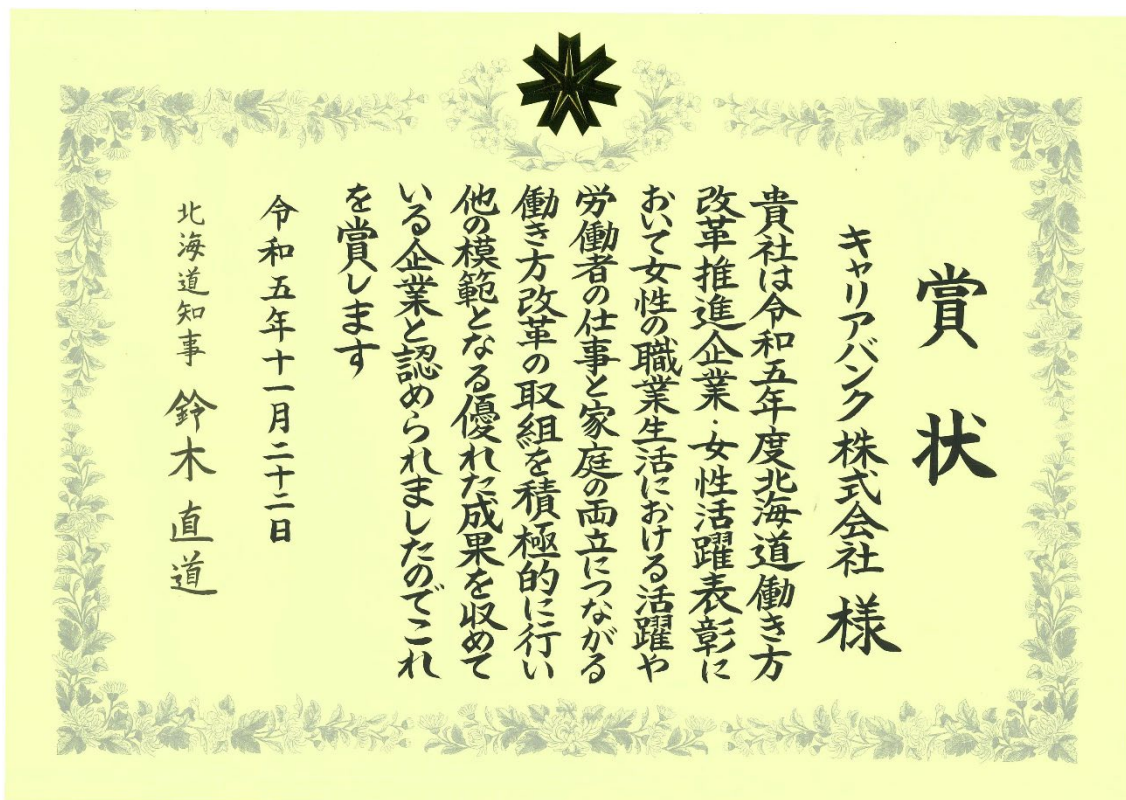 賞状
キャリアバンク株式会社 様
貴社は令和五年度北海道働き方
改革推進企業・女性活躍表彰に
おいて女性の職業生活における活躍や
労働者の仕事と家庭の両立につながる
働き方改革の取組を積極的に行い
他の模範となる優れた成果を収めて
いる企業と認められましたのでこれ
を賞します
令和五年十一月二十二日
北海道知事 鈴木直道